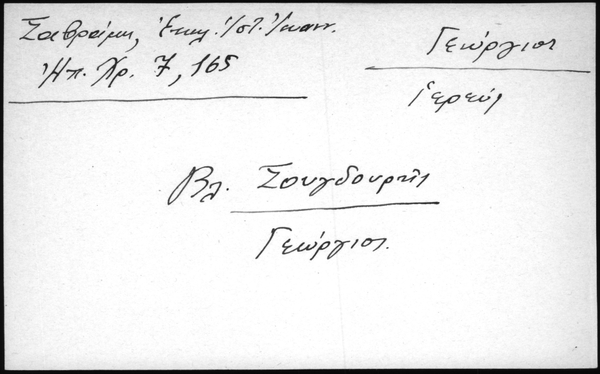 Σαβράμη, Ἐκκλ. Ἱστ. Ἰωανν.
Ἠπ. Χρ. 7, 165
Γεώργιος
ἱερεύς
Βλ. Σουγδουρῆς
Γεώργιος.